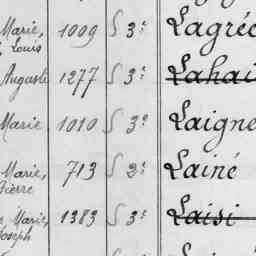 Marie, 1009 S 3e Lagréé
Louis
Auguste 1277 S 3e Lahai
Marie 1010 S 3e Laigne
Marie, 713 S 2e Lainé
Pierre
Marie, 1383 S 3e Laisi
Joseph